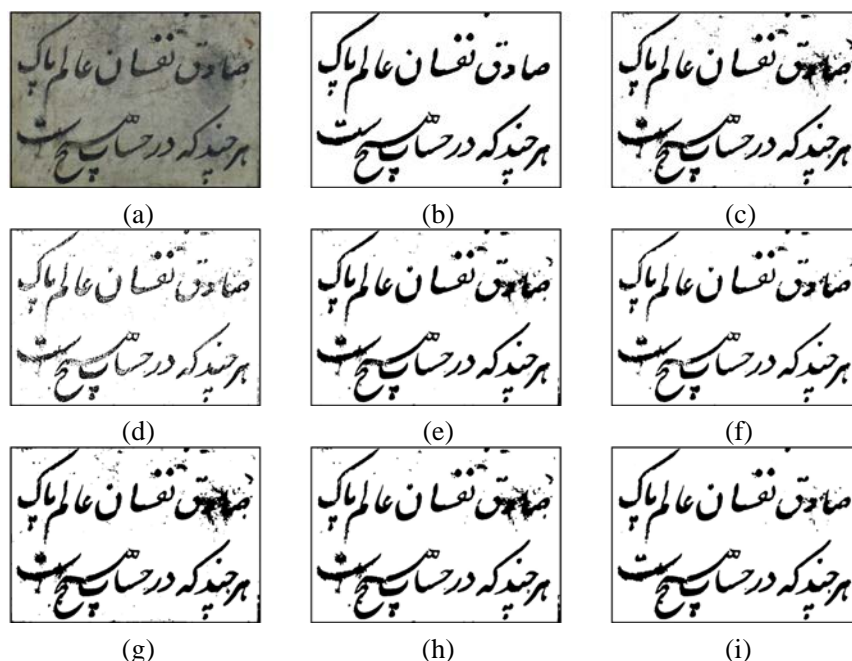 صادق نفسان عالم پاک
هرچند که در حساب
(a)
صادق نفسان عالم پاک
هرچند که در حساب
(b)
صادق نفسان عالم پاک
هرچند که در حساب
(c)
صادق نفسان عالم پاک
هرچند که در حساب
(d)
صادق نفسان عالم پاک
هرچند که در حساب
(e)
صادق نفسان عالم پاک
هرچند که در حساب
(f)
صادق نفسان عالم پاک
هرچند که در حساب
(g)
صادق نفسان عالم پاک
هرچند که در حساب
(h)
صادق نفسان عالم پاک
هرچند که در حساب
(i)